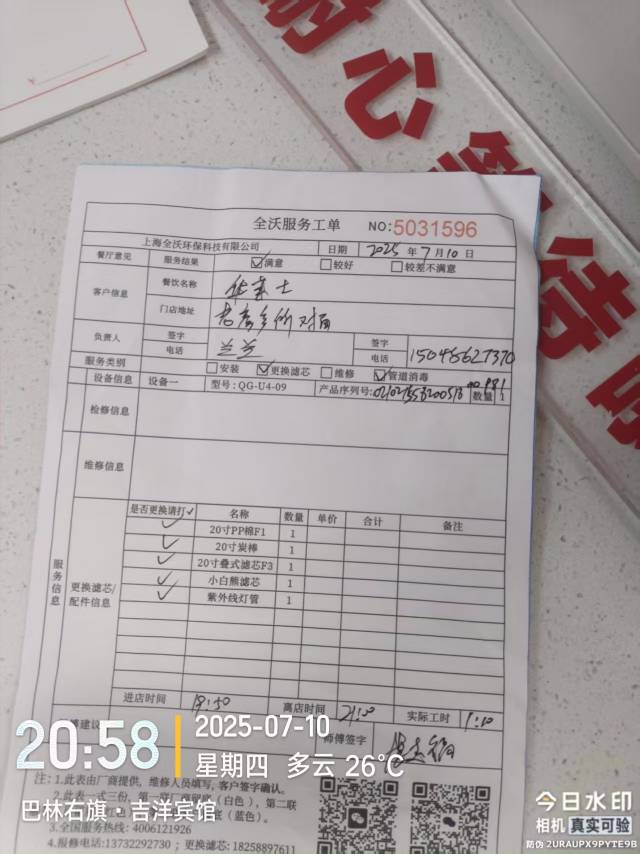 全沃服务工单 NO:5031596
上海全沃环保科技有限公司 日期 2025 年 7 月 10 日
餐厅意见 服务结果 ☑满意 □较好 □较差不满意
客户信息 餐饮名称 华莱士
门店地址 对面
负责人 签字 兰兰 签字
电话 电话 15048627370
服务类别 □安装 ☑更换滤芯 □维修 ☑管道消毒
设备信息 设备一 型号:QG-U4-09 产品序列号: 数量 1
检修信息
维修信息
服务信息
更换滤芯/配件信息
是否更换请打✓ 名称 数量 单价 合计 备注
✓ 20寸PP棉F1 1
✓ 20寸炭棒 1
✓ 20寸叠式滤芯F3 1
✓ 小白熊滤芯 1
✓ 紫外线灯管 1
进店时间 离店时间 21:00 实际工时 1:10
建议 师傅签字
20:58 2025-07-10
星期四 多云 26°C
巴林右旗·吉洋宾馆
注:1.此表由厂商提供,维修人员填写,客户签字确认。
2.此表一式三份,第一 (白色),第二联
(蓝色)。
3.全国服务热线:4006121926
4.报修电话:13732292730;更换滤芯:18258897611
今日水印
相机 真实可验
防伪 2URAUPX9PYTE9B